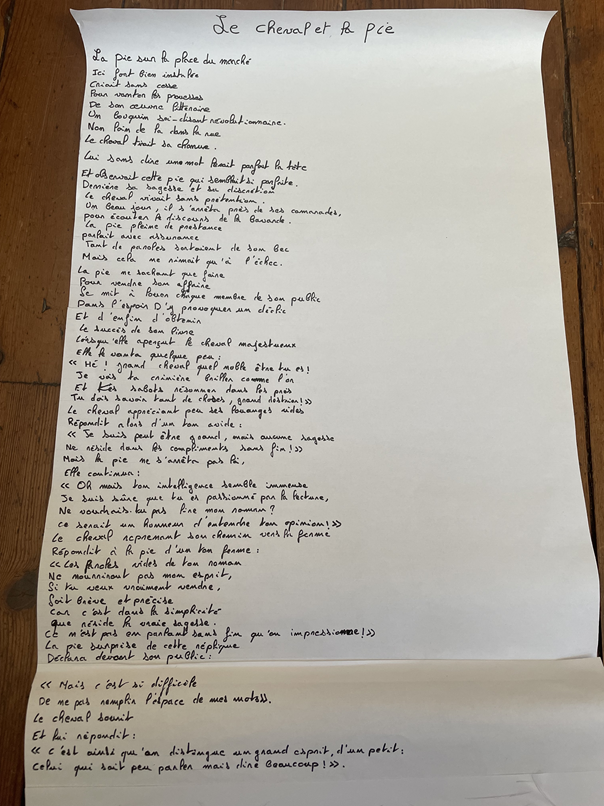 Le cheval et la pie
La pie sur la place du marché
Ici fort bien installée
Criait sans cesse
Pour vanter les prouesses
De son œuvre littéraire
Un bouquin soi-disant révolutionnaire.
Non loin de là dans la rue
Le cheval tirait sa charrue.
Lui sans dire un mot levait parfois la tête
Et observait cette pie qui semblait si parfaite.
Derrière sa sagesse et sa discrétion
Le cheval vivait sans prétention.
Un beau jour, il s'arrêta près de ses camarades,
pour écouter le discours de la bavarde.
La pie pleine de prestance
parlait avec assurance
Tant de paroles sortaient de son bec
Mais cela ne rimait qu'à l'échec.
La pie ne sachant que faire
Pour vendre son affaire
Se mit à louer chaque membre de son public
Dans l'espoir D'y provoquer un déclic
Et d'enfin d'obtenir
Le succès de son livre
Lorsqu'elle aperçut le cheval majestueux
Elle le vanta quelque peu :
« Hé ! grand cheval quel noble être tu es !
Je vois ta crinière briller comme l'or
Et tes sabots résonner dans les prés
Tu dois savoir tant de choses, grand destrier ! »
Le cheval appréciant peu ses louanges vides
Répondit alors d'un ton avide :
« Je suis peut être grand, mais aucune sagesse
Ne réside dans les compliments sans fin ! »
Mais la pie ne s'arrêta pas là,
Elle continua :
« Oh mais ton intelligence semble immense
Je suis sûre que tu es passionné par la lecture,
Ne voudrais-tu pas lire mon roman ?
ce serait un honneur d'entendre ton opinion ! »
Le cheval reprenant son chemin vers la ferme
Répondit à la pie d'un ton ferme :
« Les paroles vides de ton roman
Ne nourriront pas mon esprit,
Si tu veux vraiment vendre,
Soit brève et précise
Car c'est dans la simplicité
que réside la vraie sagesse.
Ce n'est pas en parlant sans fin qu'on impressionne ! »
La pie surprise de cette réplique
Déclara devant son public :
« Mais c'est si difficile
De ne pas remplir l'espace de mes mots ».
Le cheval sourit
Et lui répondit :
« C'est ainsi qu'on distingue un grand esprit, d'un petit :
Celui qui sait peu parler mais dire beaucoup ! ».